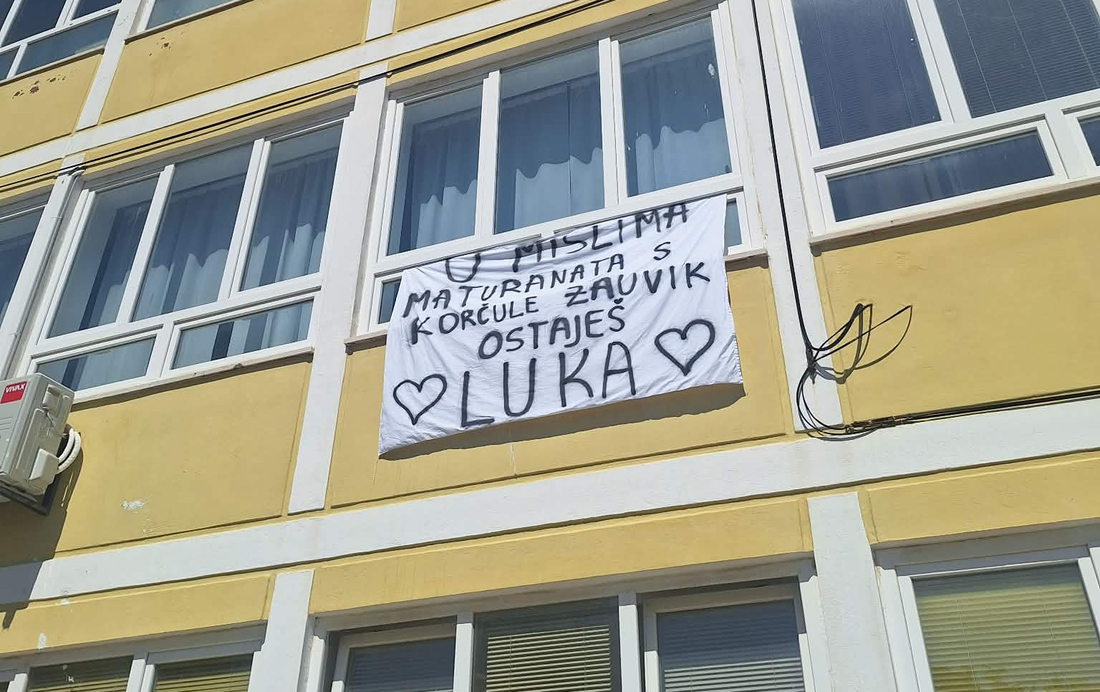 U MISLIMA
MATURANATA S
KORČULE ZAUVIK
OSTAJEŠ
LUKA
VIVAX